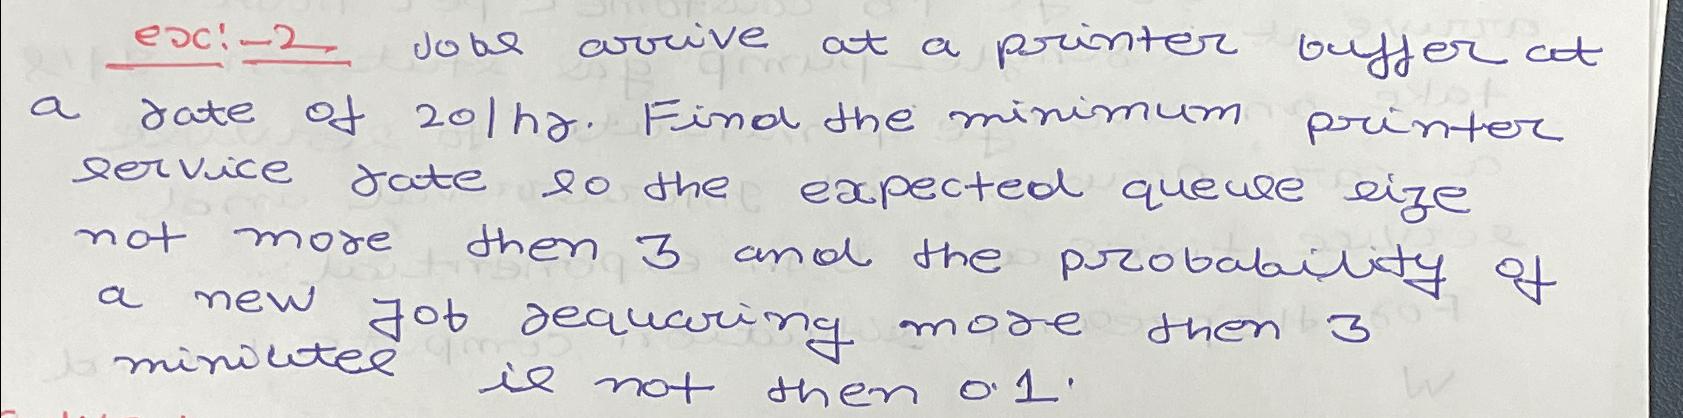 exc:-2 Jobs arrive at a printer buffer at
a rate of 20/hr. Find the minimum printer
service rate so the expected queue size
not more then 3 and the probabability of
a new job requaring more then 3
minutes is not then 0.1.